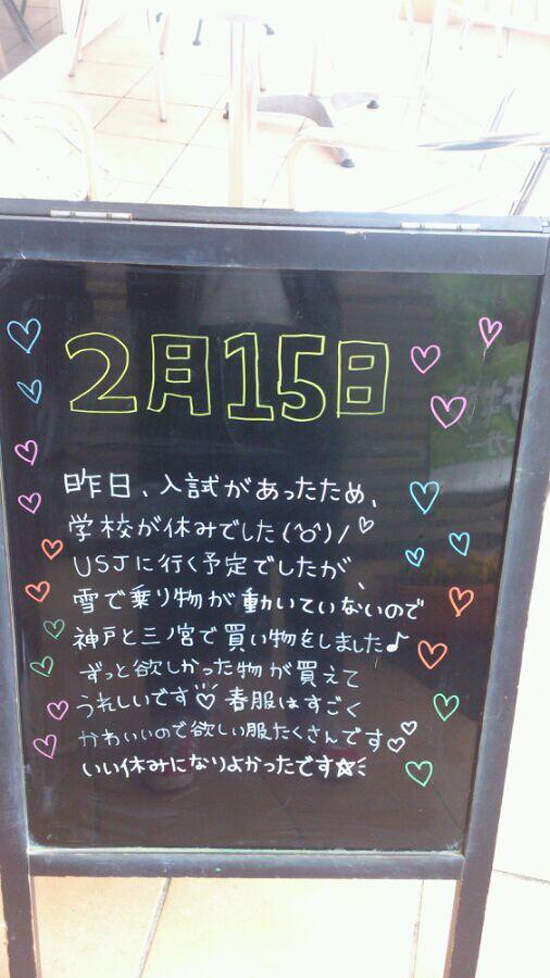 2月15日
昨日、入試があったため、
学校が休みでした(^o^)/♡
USJに行く予定でしたが、
雪で乗り物が動いていないので
神戸と三ノ宮で買い物をしました♪
ずっと欲しかった物が買えて
うれしいです♡春服はすごく
かわいいので欲しい服たくさんです♡♡
いい休みになりよかったです☆